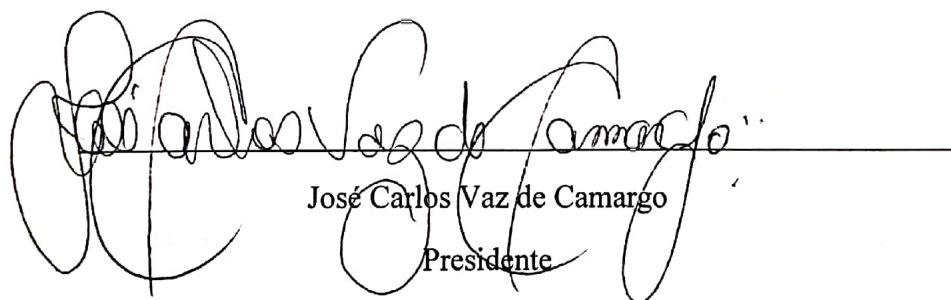 José Carlos Vaz de Camargo
José Carlos Vaz de Camargo
Presidente